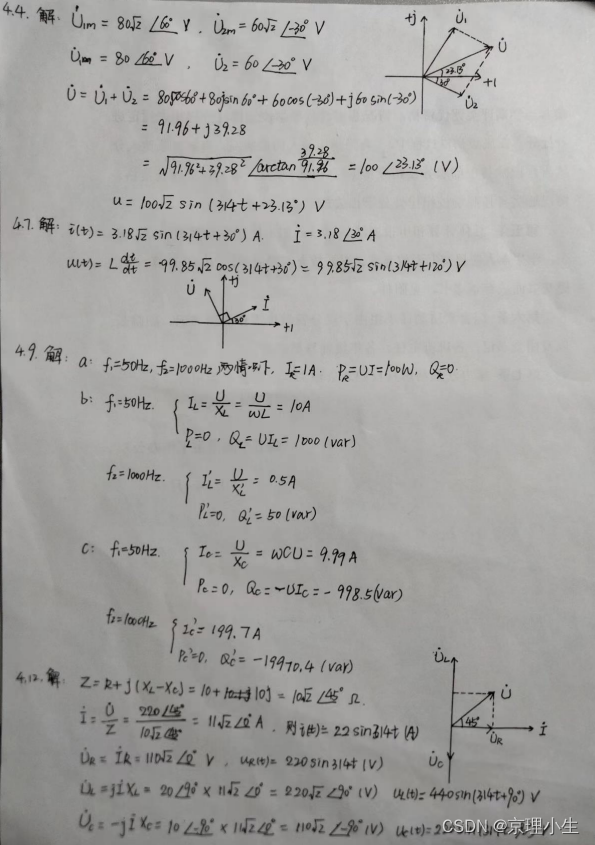 4.4. 解: U̇₁ₘ = 80√2 ∠60° V, U̇₂ₘ = 60√2 ∠-30° V
U̇₁ₘ = 80 ∠60° V, U̇₂ = 60 ∠-30° V
U̇ = U̇₁ + U̇₂ = 80cos60° + 80jsin60° + 60cos(-30°) + j60sin(-30°)
= 91.96 + j39.28
= √(91.96² + 39.28²) ∠arctan 39.28/91.96 = 100 ∠23.13° (V)
u = 100√2 sin(314t + 23.13°) V
+j U̇₁ U̇ 23.13° 30° +1 U̇₂
4.7. 解: i(t) = 3.18√2 sin(314t + 30°) A. İ = 3.18 ∠30° A
u(t) = L di/dt = 99.85√2 cos(314t + 30°) = 99.85√2 sin(314t + 120°) V
+j U̇ İ 30° +1
4.9. 解: a: f₁=50Hz, f₂=1000Hz 两情况下, I_R=1A. P_R=UI=100W, Q_R=0.
b: f₁=50Hz. { I_L = U/X_L = U/ωL = 10A
P_L=0, Q_L=UI_L=1000(var)
f₂=1000Hz. { I'_L = U/X'_L = 0.5A
P'_L=0, Q'_L=50(var)
C: f₁=50Hz. { I_C = U/X_C = ωCU = 9.99A
P_C=0, Q_C=-UI_C=-998.5(var)
f₂=1000Hz { I_C'=199.7A
P_C'=0, Q_C'=-19970.4(var)
4.12. 解: Z = R + j(X_L - X_C) = 10 + 10j = 10√2 ∠45° Ω.
İ = U̇/Z = 220∠45°/10√2∠45° = 11√2 ∠0° A, 则i(t)=22sin314t (A)
U̇_R = İR = 110√2 ∠0° V, u_R(t)=220sin314t (V)
U̇_L = jİX_L = 20∠90° × 11√2∠0° = 220√2 ∠90° (V) u_L(t)=440sin(314t+90°) V
U̇_C = -jİX_C = 10∠-90° × 11√2∠0° = 110√2 ∠-90° (V) u_C(t)=2
U̇_L U̇ 45° U̇_R İ U̇_C
CSDN @京理小生